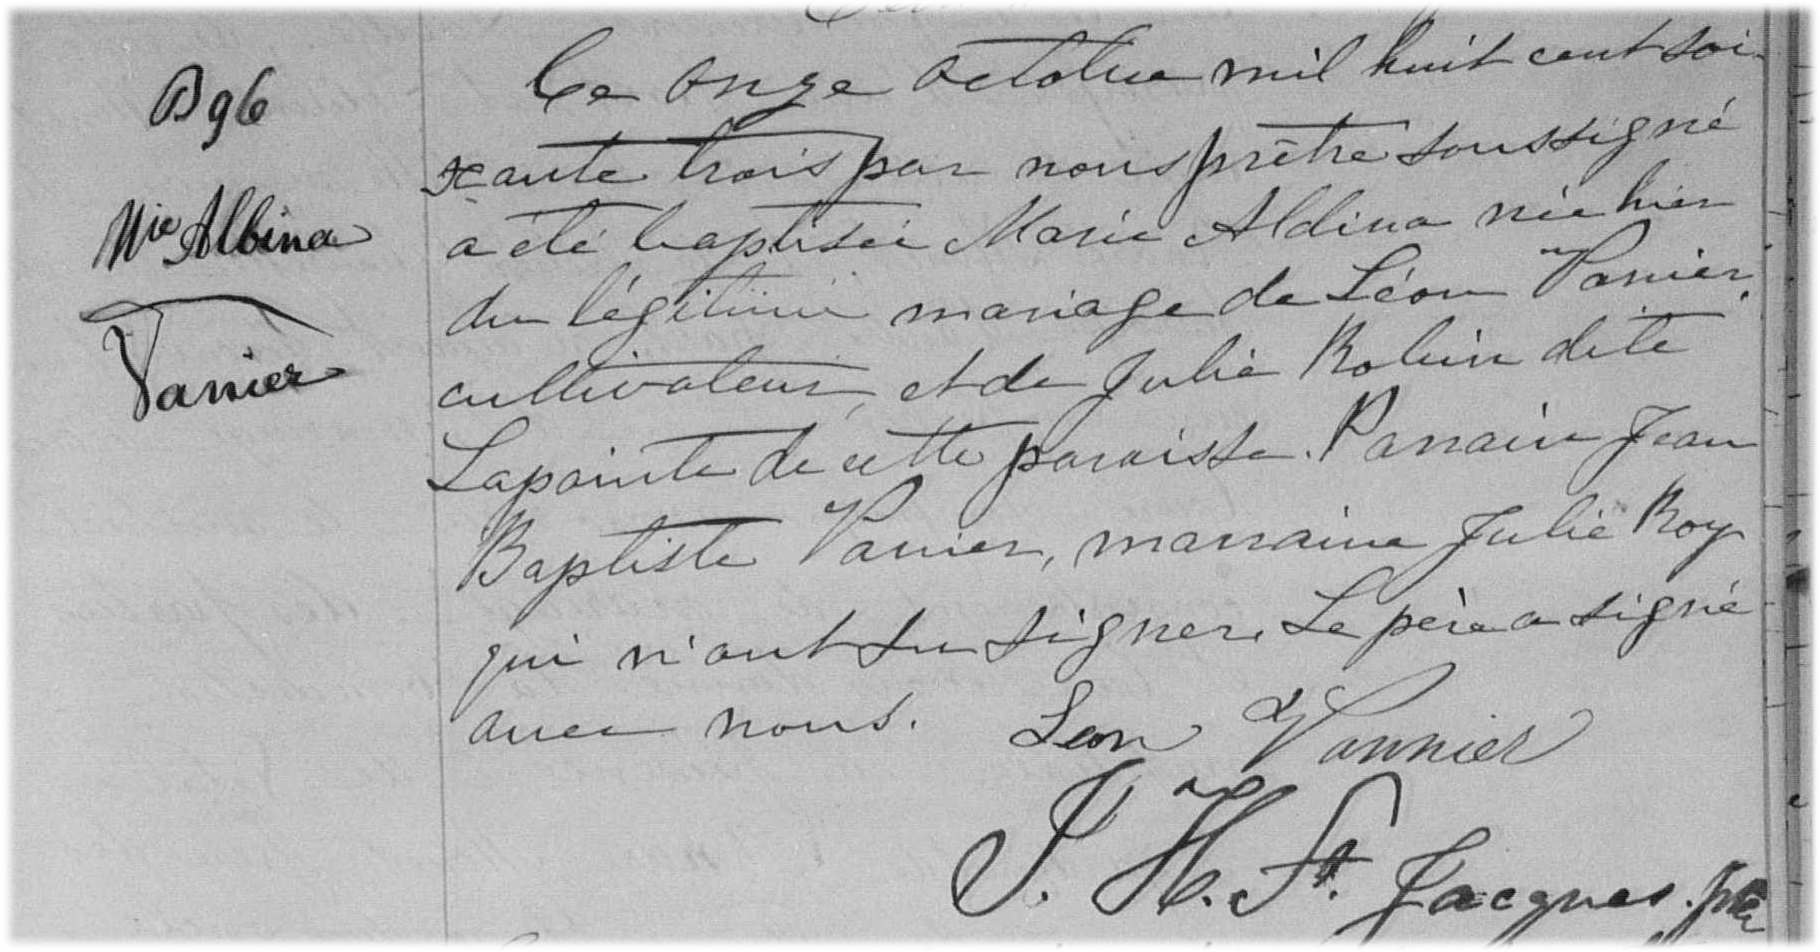 B 96
Mie Albina
Vanier
Ce onze octobre mil huit cent soi-
xante trois par nous prêtre soussigné
a été baptisée Marie Aldina née hier
du légitime mariage de Léon Vanier,
cultivateur, et de Julie Robin dite
Lapointe de cette paroisse. Parrain Jean
Baptiste Vanier, marraine Julie Roy
qui n'ont su signer. Le père a signé
avec nous.
Leon Vannier
J. H. St. Jacques. ptre